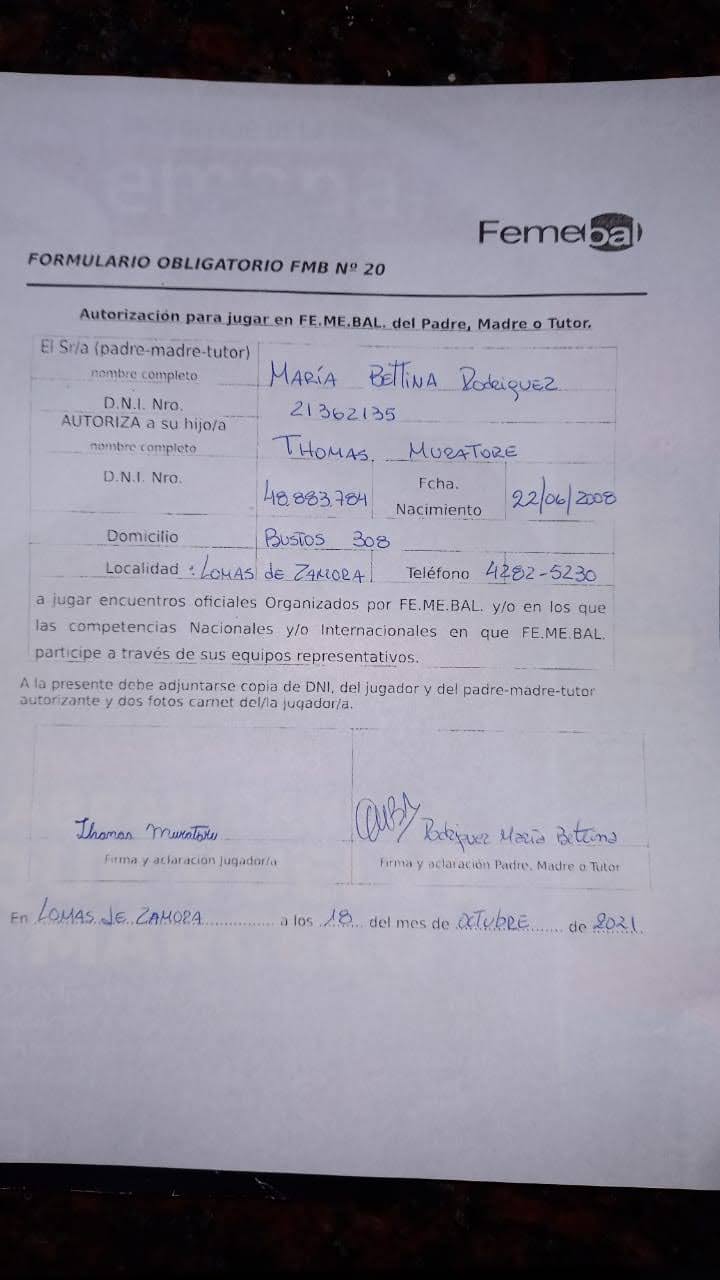 Femebal
FORMULARIO OBLIGATORIO FMB Nº 20
Autorización para jugar en FE.ME.BAL. del Padre, Madre o Tutor.
El Sr/a (padre-madre-tutor)
nombre completo MARÍA BETTINA RODRIGUEZ
D.N.I. Nro. 21362135
AUTORIZA a su hijo/a
nombre completo THOMAS. MURATORE
D.N.I. Nro. 48.883.784 Fcha. Nacimiento 22/06/2008
Domicilio BUSTOS 308
Localidad : LOMAS de ZAMORA Teléfono 4282-5230
a jugar encuentros oficiales Organizados por FE.ME.BAL. y/o en los que
las competencias Nacionales y/o Internacionales en que FE.ME.BAL.
participe a través de sus equipos representativos.
A la presente debe adjuntarse copia de DNI, del jugador y del padre-madre-tutor
autorizante y dos fotos carnet del/la jugador/a.
Thomas Muratore
Firma y aclaración Jugador/a
Rodriguez María Bettina
Firma y aclaración Padre, Madre o Tutor
En LOMAS. de. ZAMORA .............. a los .18... del mes de OCTUBRE ....... de 2021.